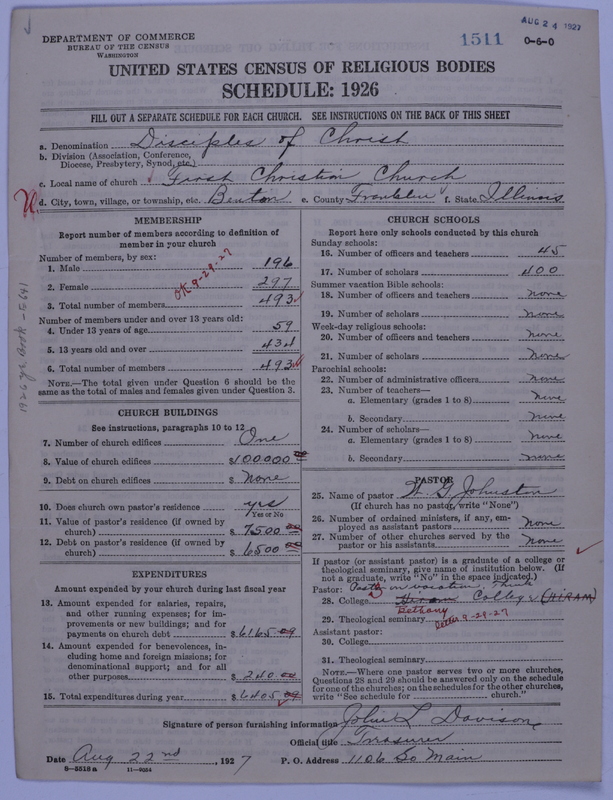 AUG 24 1927
DEPARTMENT OF COMMERCE
BUREAU OF THE CENSUS
WASHINGTON
1511 0-6-0
UNITED STATES CENSUS OF RELIGIOUS BODIES
SCHEDULE: 1926
FILL OUT A SEPARATE SCHEDULE FOR EACH CHURCH. SEE INSTRUCTIONS ON THE BACK OF THIS SHEET
a. Denomination Disciples of Christ
b. Division (Association, Conference,
Diocese, Presbytery, Synod, etc.)
c. Local name of church First Christian Church
d. City, town, village, or township, etc. Benton e. County Franklin f. State Illinois
MEMBERSHIP
Report number of members according to definition of
member in your church
Number of members, by sex:
1. Male 196
2. Female 297
3. Total number of members 493
OK 9-29-27
Number of members under and over 13 years old:
4. Under 13 years of age 59
5. 13 years old and over 434
6. Total number of members 493
NOTE.—The total given under Question 6 should be the
same as the total of males and females given under Question 3.
1926 yr. Book - 541
CHURCH BUILDINGS
See instructions, paragraphs 10 to 12
7. Number of church edifices One
8. Value of church edifices $100000 00
9. Debt on church edifices $ None
10. Does church own pastor's residence? yes
Yes or No
11. Value of pastor's residence (if owned by
church) $7500 00
12. Debt on pastor's residence (if owned by
church) $6500 00
EXPENDITURES
Amount expended by your church during last fiscal year
13. Amount expended for salaries, repairs,
and other running expenses; for im-
provements or new buildings; and for
payments on church debt $6165 09
14. Amount expended for benevolences, in-
cluding home and foreign missions; for
denominational support; and for all
other purposes $240 00
15. Total expenditures during year $6405 09
CHURCH SCHOOLS
Report here only schools conducted by this church
Sunday schools:
16. Number of officers and teachers 45
17. Number of scholars 400
Summer vacation Bible schools:
18. Number of officers and teachers None
19. Number of scholars None
Week-day religious schools:
20. Number of officers and teachers None
21. Number of scholars None
Parochial schools:
22. Number of administrative officers None
23. Number of teachers—
a. Elementary (grades 1 to 8) None
b. Secondary None
24. Number of scholars—
a. Elementary (grades 1 to 8) None
b. Secondary None
PASTOR
25. Name of pastor W. G. Johnston
(If church has no pastor, write "None")
26. Number of ordained ministers, if any, em-
ployed as assistant pastors None
27. Number of other churches served by the
pastor or his assistants None
If pastor (or assistant pastor) is a graduate of a college or
theological seminary, give name of institution below. (If
not a graduate, write "No" in the space indicated.)
Pastor: Pastor on vacation, think
28. College Hiram College (HIRAM)
Bethany
29. Theological seminary letter 9-29-27
Assistant pastor:
30. College
31. Theological seminary
NOTE.—Where one pastor serves two or more churches,
Questions 28 and 29 should be answered only on the schedule
for one of the churches; on the schedules for the other churches,
write "See schedule for church."
Signature of person furnishing information John L Davison
Official title Treasurer
Date Aug 22nd, 1927 P. O. Address 1106 So Main
8—5518a 11—9354